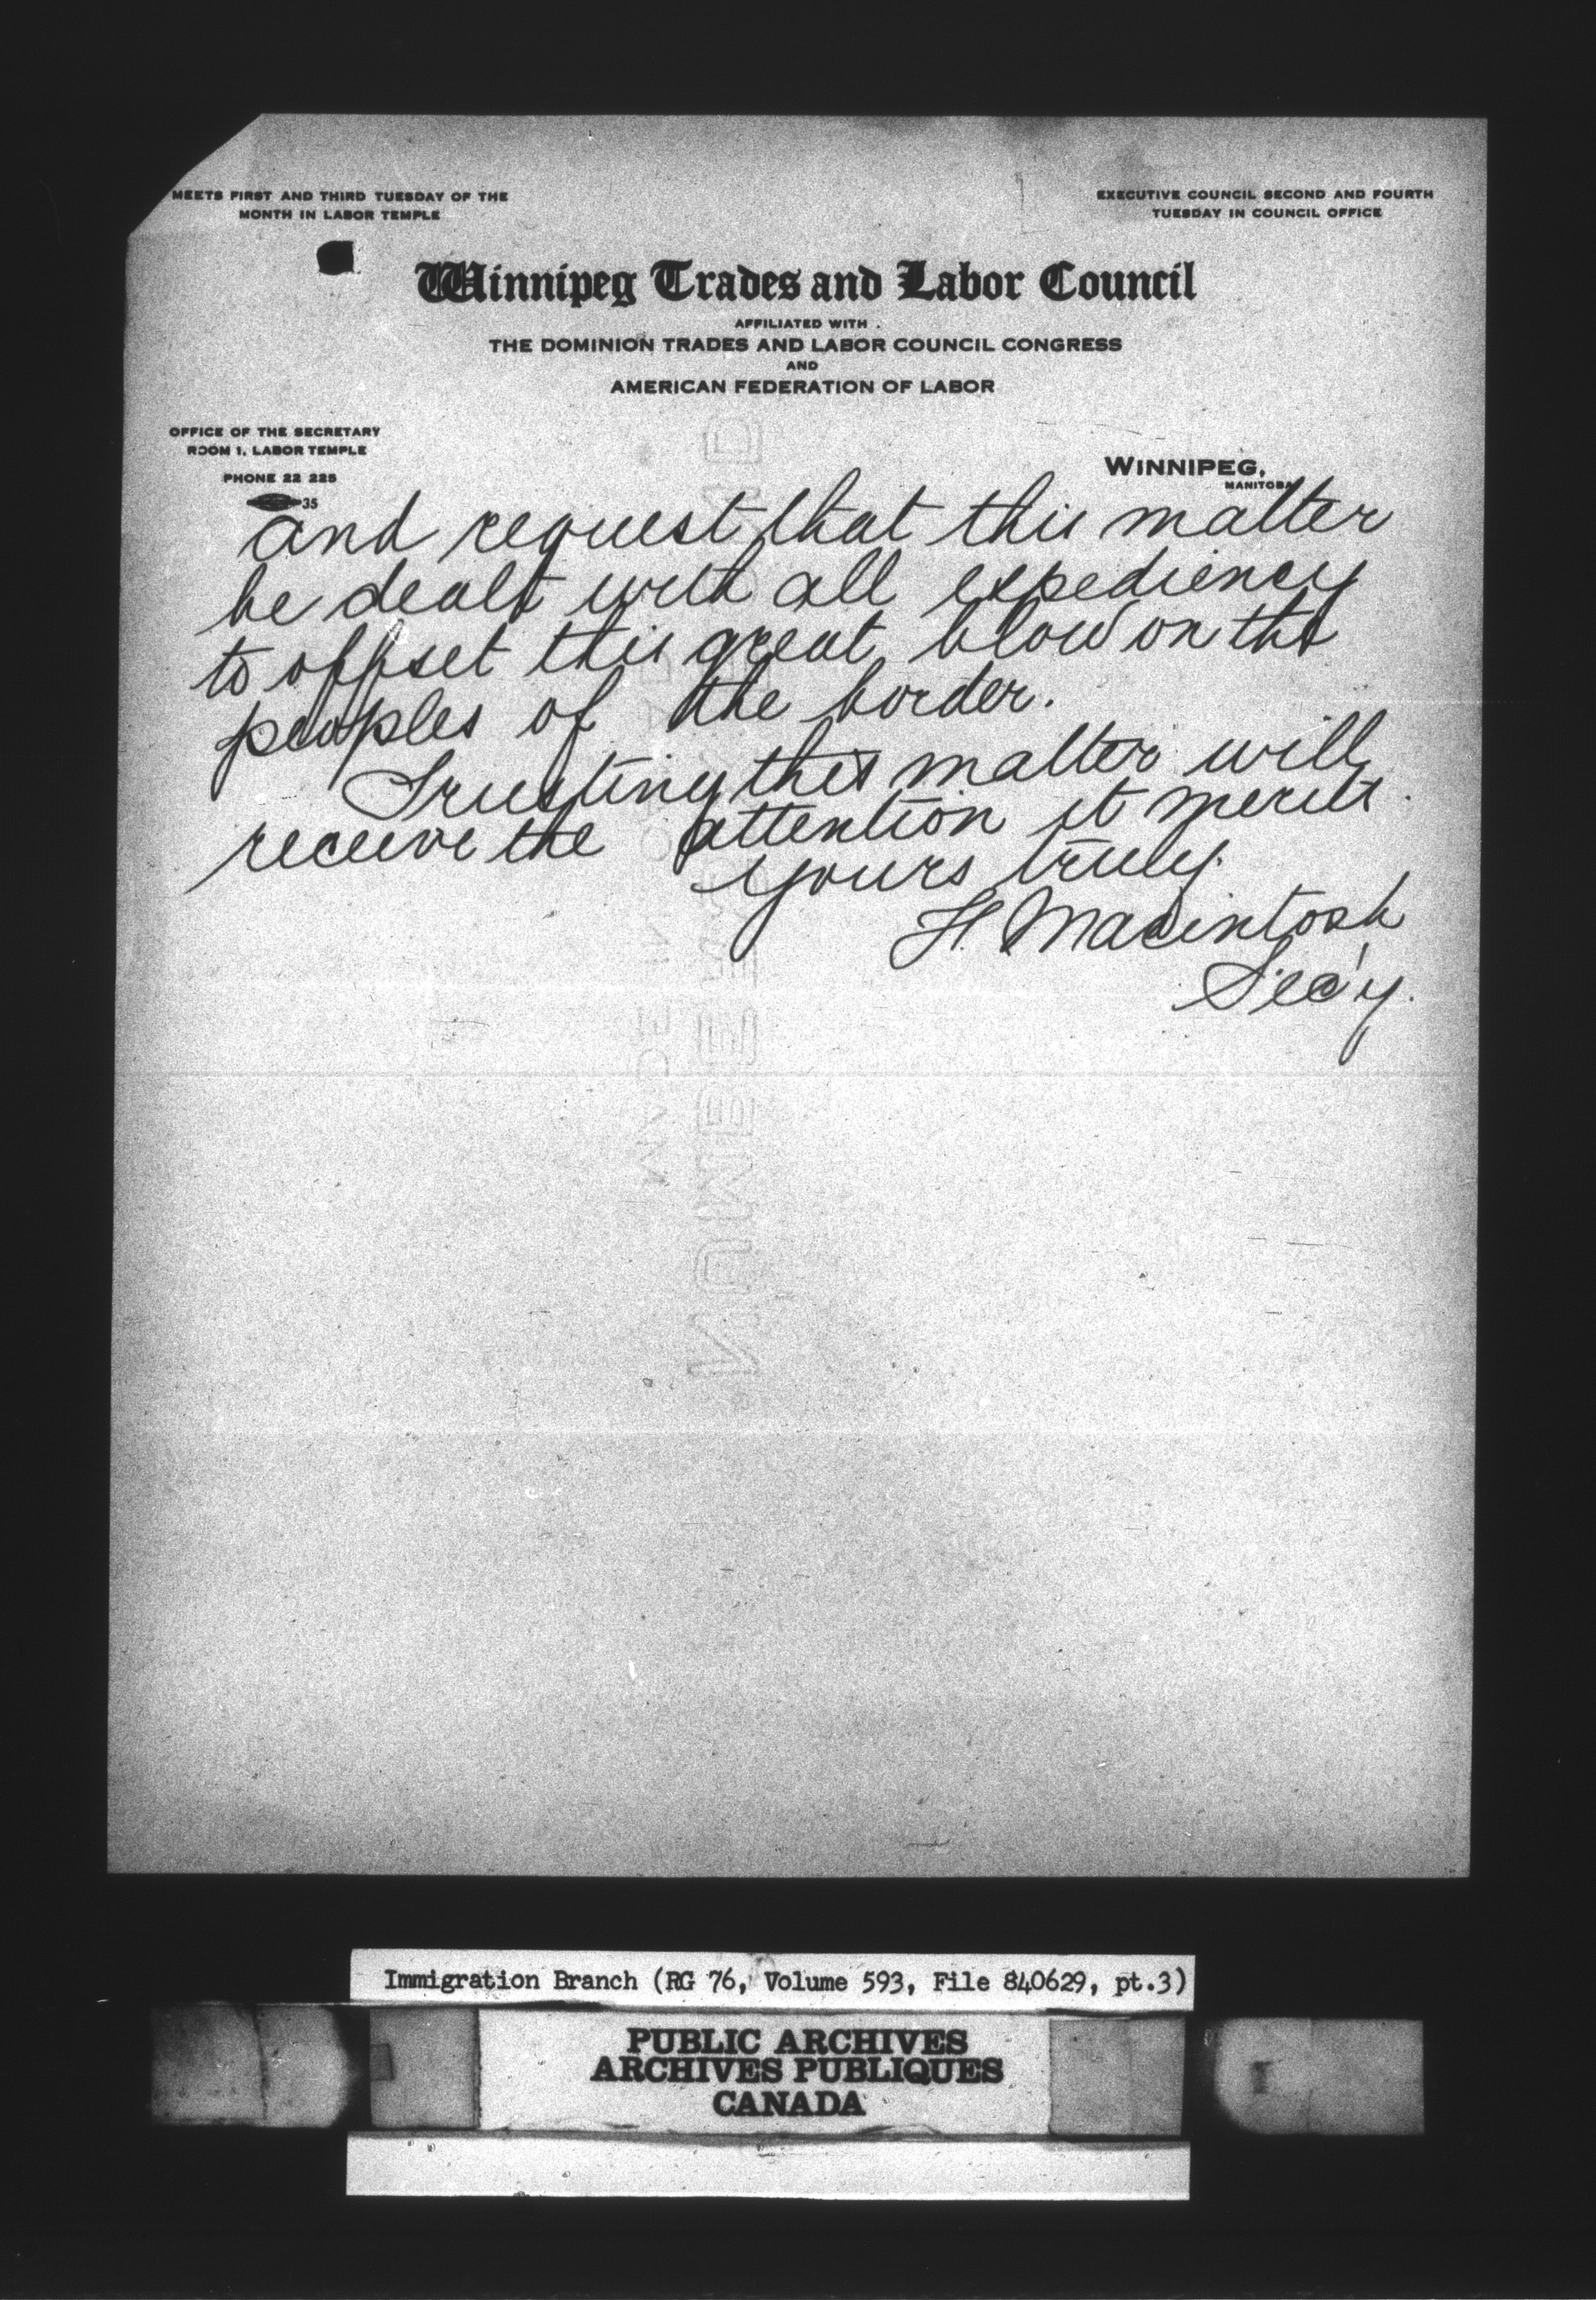 MEETS FIRST AND THIRD TUESDAY OF THE
MONTH IN LABOR TEMPLE
EXECUTIVE COUNCIL SECOND AND FOURTH
TUESDAY IN COUNCIL OFFICE
Winnipeg Trades and Labor Council
AFFILIATED WITH
THE DOMINION TRADES AND LABOR COUNCIL CONGRESS
AND
AMERICAN FEDERATION OF LABOR
OFFICE OF THE SECRETARY
ROOM 1, LABOR TEMPLE
PHONE 22 225
35
WINNIPEG,
MANITOBA
and request that this matter
be dealt with all expediency
to offset this great blow on the
peoples of the border.
Trusting this matter will
receive the attention it merits.
Yours truly.
H. Macintosh
Sec'y.
Immigration Branch (RG 76, Volume 593, File 840629, pt.3)
PUBLIC ARCHIVES
ARCHIVES PUBLIQUES
CANADA